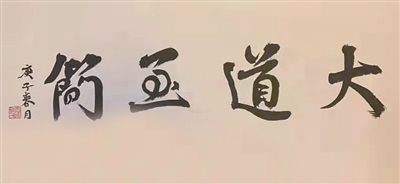 大道至简
庚子春月